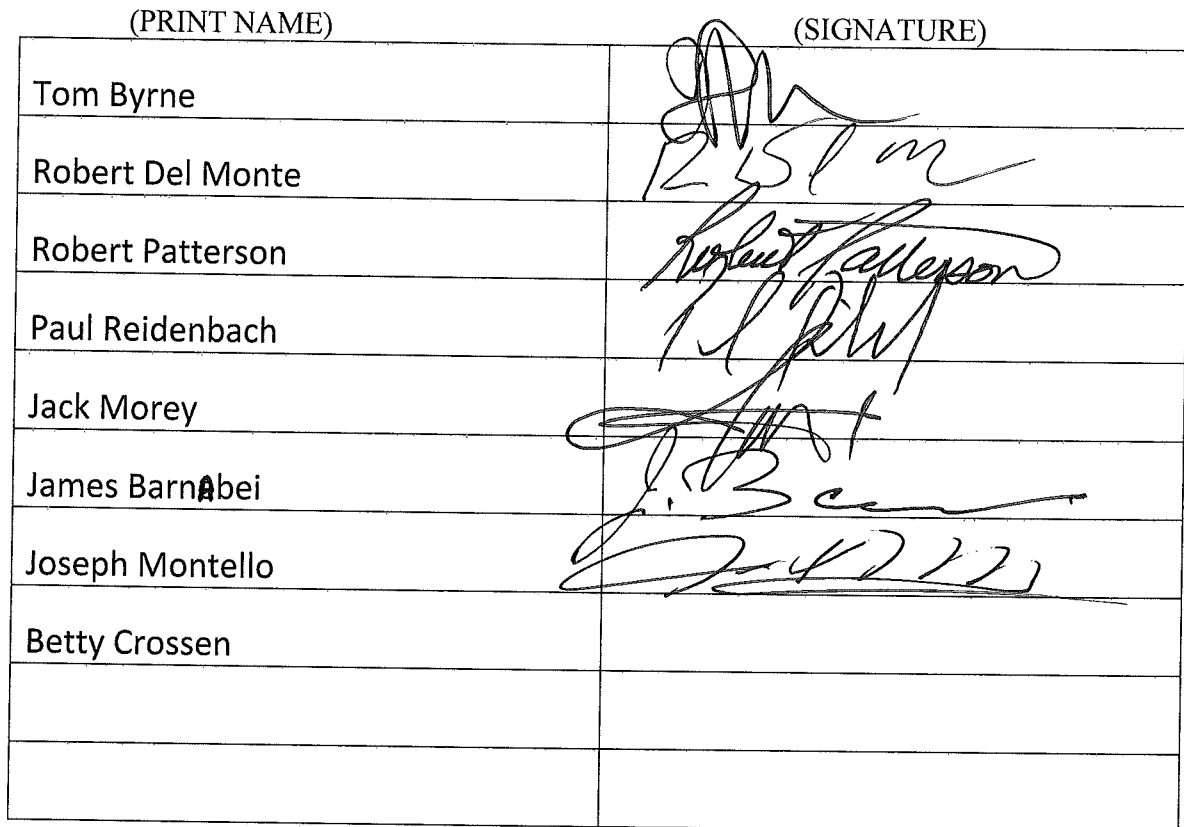 (PRINT NAME) (SIGNATURE)
Tom Byrne
Robert Del Monte
Robert Patterson Robert Patterson
Paul Reidenbach
Jack Morey
James BarnAbei J. B
Joseph Montello
Betty Crossen